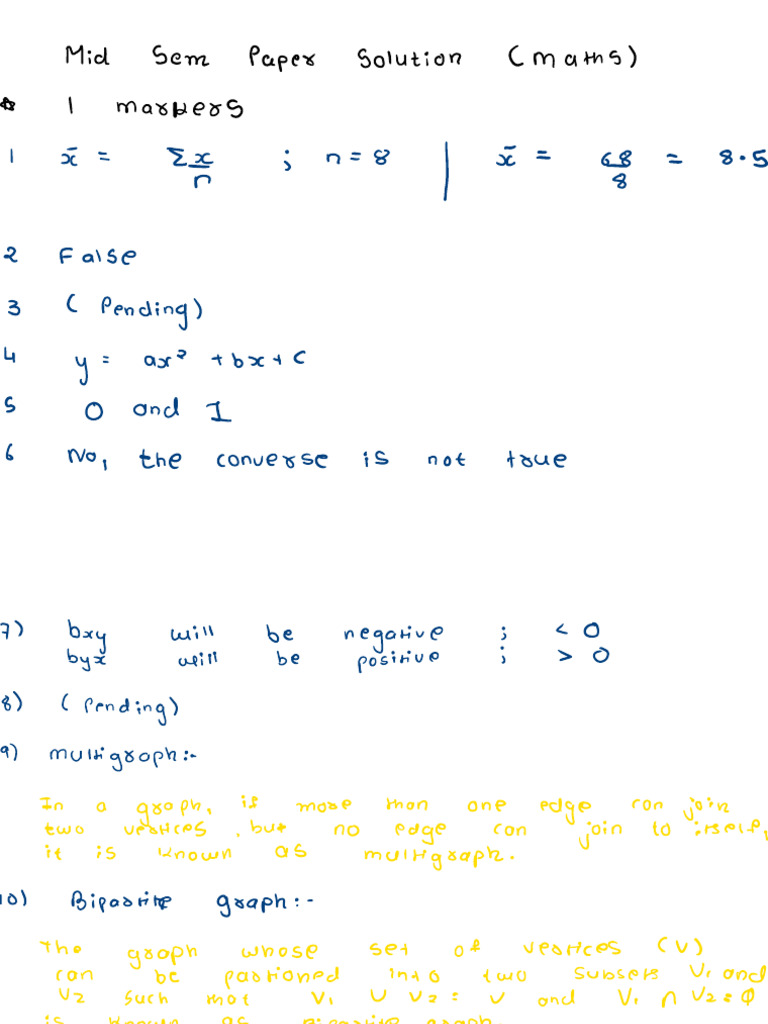 Mid Sem Paper Solution (maths)
* 1 markers
1 x̄ = Σx/n ; n = 8 | x̄ = 68/8 = 8.5
2 False
3 (Pending)
4 y = ax² + bx + c
5 0 and 1
6 No, the converse is not true
7) bxy will be negative ; < 0
byx will be positive ; > 0
8) (Pending)
9) multigraph:-
In a graph, if more than one edge can join
two vertices, but no edge can join to itself,
it is known as multigraph.
10) Biparite graph:-
The graph whose set of vertices (V)
can be partioned into two subsets V₁ and
V₂ such that V₁ ∪ V₂ = V and V₁ ∩ V₂ = Φ
is known as Biparite graph.